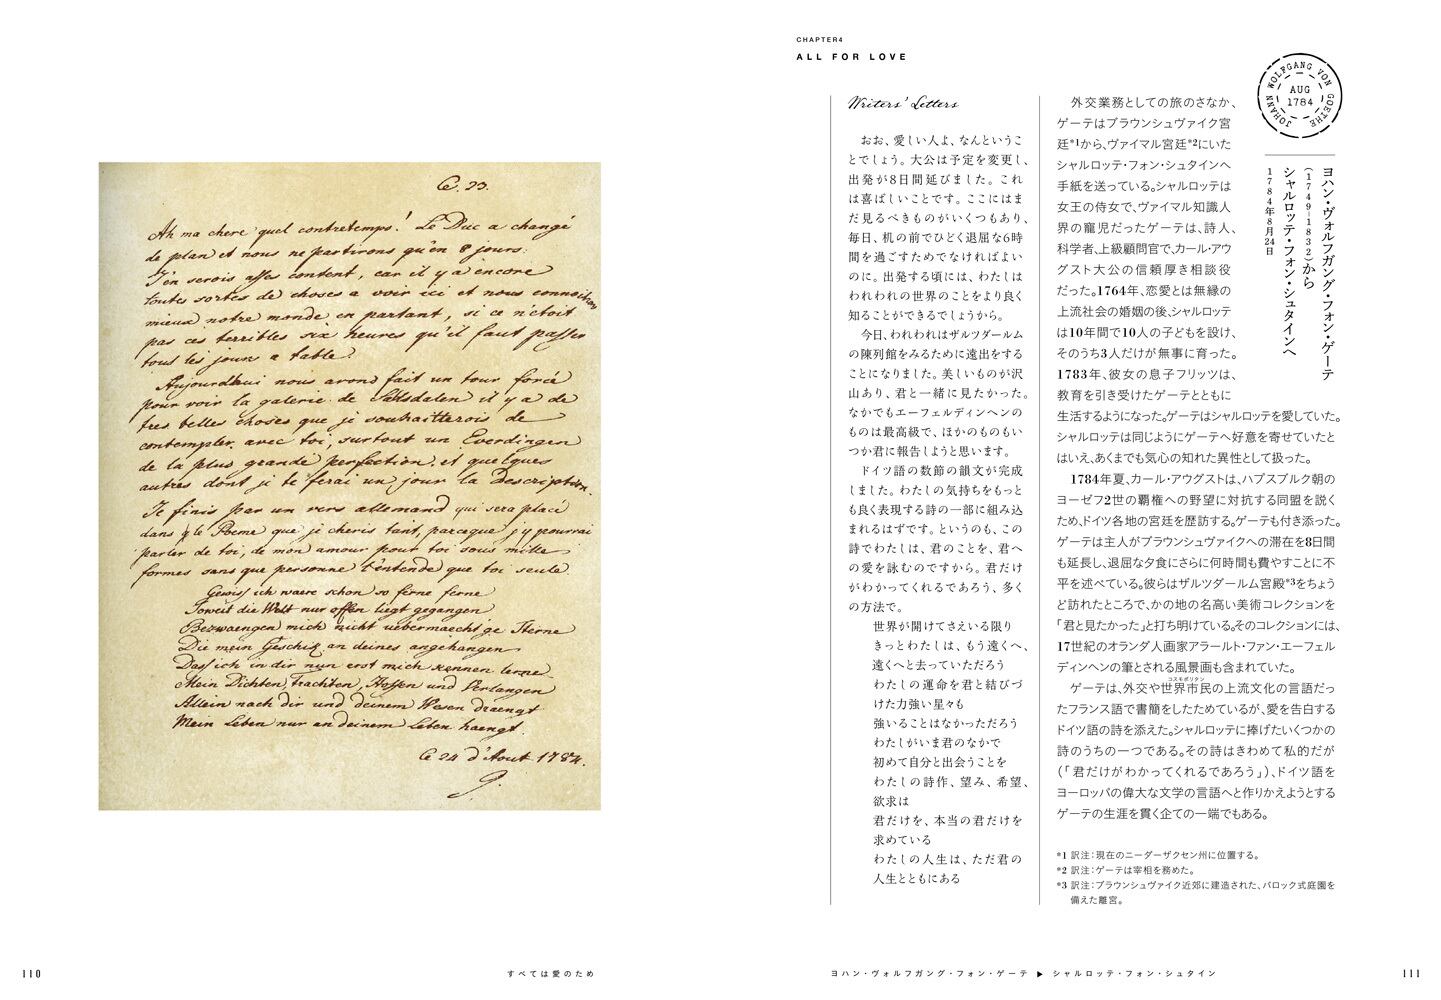 Ce. 23.
Ah ma chere quel contretemps! Le Duc a changé
de plan et nous ne partirons qu'en 8 jours.
J'en serois assés content, car il y a encore
toutes sortes de choses a voir ici et nous connoitrons
mieux notre monde en partant, si ce n'etoit
pas ces terribles six heures qu'il faut passer
tous les jours a table.
Aujourdhui nous avons fait un tour forcé
pour voir la galerie de Saltsdalen il y a de
tres belles choses que je souhaitterois de
contempler avec toi, surtout un Everdingen
de la plus grande perfection. et quelques
autres dont je te ferai un jour la Description.
Je finis par un vers allemand qui sera placé
dans le Poeme que je cheris tant, parceque j'y pourrai
parler de toi, de mon amour pour toi sous mille
formes sans que personne l'entende que toi seule.
Gewiss ich waere schon so ferne ferne
Soweit die Welt nur offen liegt gegangen
Bezwaengen mich nicht uebermaecht'ge Sterne
Die mein Geschick an deines angehangen
Dass ich in dir nun erst mich kennen lerne
Mein Dichten, Trachten, Hoffen und Verlangen
Allein nach dir und deinem Wesen draengt
Mein Leben nur an deinem Leben haengt.
Ce 24 d'Aout 1784.
G.
110
すべては愛のため
CHAPTER4
ALL FOR LOVE
JOHANN WOLFGANG VON GOETHE
AUG
1784
ヨハン・ヴォルフガング・フォン・ゲーテ
(1749–1832)から
シャルロッテ・フォン・シュタインへ
1784年8月24日
Writers' Letters
おお、愛しい人よ、なんというこ
とでしょう。大公は予定を変更し、
出発が8日間延びました。これ
は喜ばしいことです。ここにはま
だ見るべきものがいくつもあり、
毎日、机の前でひどく退屈な6時
間を過ごすためでなければよい
のに。出発する頃には、わたしは
われわれの世界のことをより良く
知ることができるでしょうから。
今日、われわれはザルツダールム
の陳列館をみるために遠出をする
ことになりました。美しいものが沢
山あり、君と一緒に見たかった。
なかでもエーフェルディンヘンの
ものは最高級で、ほかのものもい
つか君に報告しようと思います。
ドイツ語の数節の韻文が完成
しました。わたしの気持ちをもっと
も良く表現する詩の一部に組み込
まれるはずです。というのも、この
詩でわたしは、君のことを、君へ
の愛を詠むのですから。君だけ
がわかってくれるであろう、多く
の方法で。
世界が開けてさえいる限り
きっとわたしは、もう遠くへ、
遠くへと去っていただろう
わたしの運命を君と結びづ
けた力強い星々も
強いることはなかっただろう
わたしがいま君のなかで
初めて自分と出会うことを
わたしの詩作、望み、希望、
欲求は
君だけを、本当の君だけを
求めている
わたしの人生は、ただ君の
人生とともにある
外交業務としての旅のさなか、
ゲーテはブラウンシュヴァイク宮
廷*1から、ヴァイマル宮廷*2にいた
シャルロッテ・フォン・シュタインへ
手紙を送っている。シャルロッテは
女王の侍女で、ヴァイマル知識人
界の寵児だったゲーテは、詩人、
科学者、上級顧問官で、カール・アウ
グスト大公の信頼厚き相談役
だった。1764年、恋愛とは無縁の
上流社会の婚姻の後、シャルロッテ
は10年間で10人の子どもを設け、
そのうち3人だけが無事に育った。
1783年、彼女の息子フリッツは、
教育を引き受けたゲーテとともに
生活するようになった。ゲーテはシャルロッテを愛していた。
シャルロッテは同じようにゲーテへ好意を寄せていたと
はいえ、あくまでも気心の知れた異性として扱った。
1784年夏、カール・アウグストは、ハプスブルク朝の
ヨーゼフ2世の覇権への野望に対抗する同盟を説く
ため、ドイツ各地の宮廷を歴訪する。ゲーテも付き添った。
ゲーテは主人がブラウンシュヴァイクへの滞在を8日間
も延長し、退屈な夕食にさらに何時間も費やすことに不
平を述べている。彼らはザルツダールム宮殿*3をちょう
ど訪れたところで、かの地の名高い美術コレクションを
「君と見たかった」と打ち明けている。そのコレクションには、
17世紀のオランダ人画家アラールト・ファン・エーフェル
ディンヘンの筆とされる風景画も含まれていた。
コスモポリタン
ゲーテは、外交や世界市民の上流文化の言語だっ
たフランス語で書簡をしたためているが、愛を告白する
ドイツ語の詩を添えた。シャルロッテに捧げたいくつかの
詩のうちの一つである。その詩はきわめて私的だが
(「君だけがわかってくれるであろう」)、ドイツ語を
ヨーロッパの偉大な文学の言語へと作りかえようとする
ゲーテの生涯を貫く企ての一端でもある。
*1 訳注：現在のニーダーザクセン州に位置する。
*2 訳注：ゲーテは宰相を務めた。
*3 訳注：ブラウンシュヴァイク近郊に建造された、バロック式庭園を
備えた離宮。
ヨハン・ヴォルフガング・フォン・ゲーテ ▶ シャルロッテ・フォン・シュタイン
111